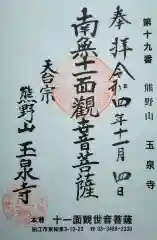 第十九番 熊野山 玉泉寺
奉拝 令和四年十一月四日
南無十一面観音菩薩
天台宗
熊野山 玉泉寺
本尊 十一面観世音菩薩
狛江市東和泉3-10-23 ☎03-3489-2330